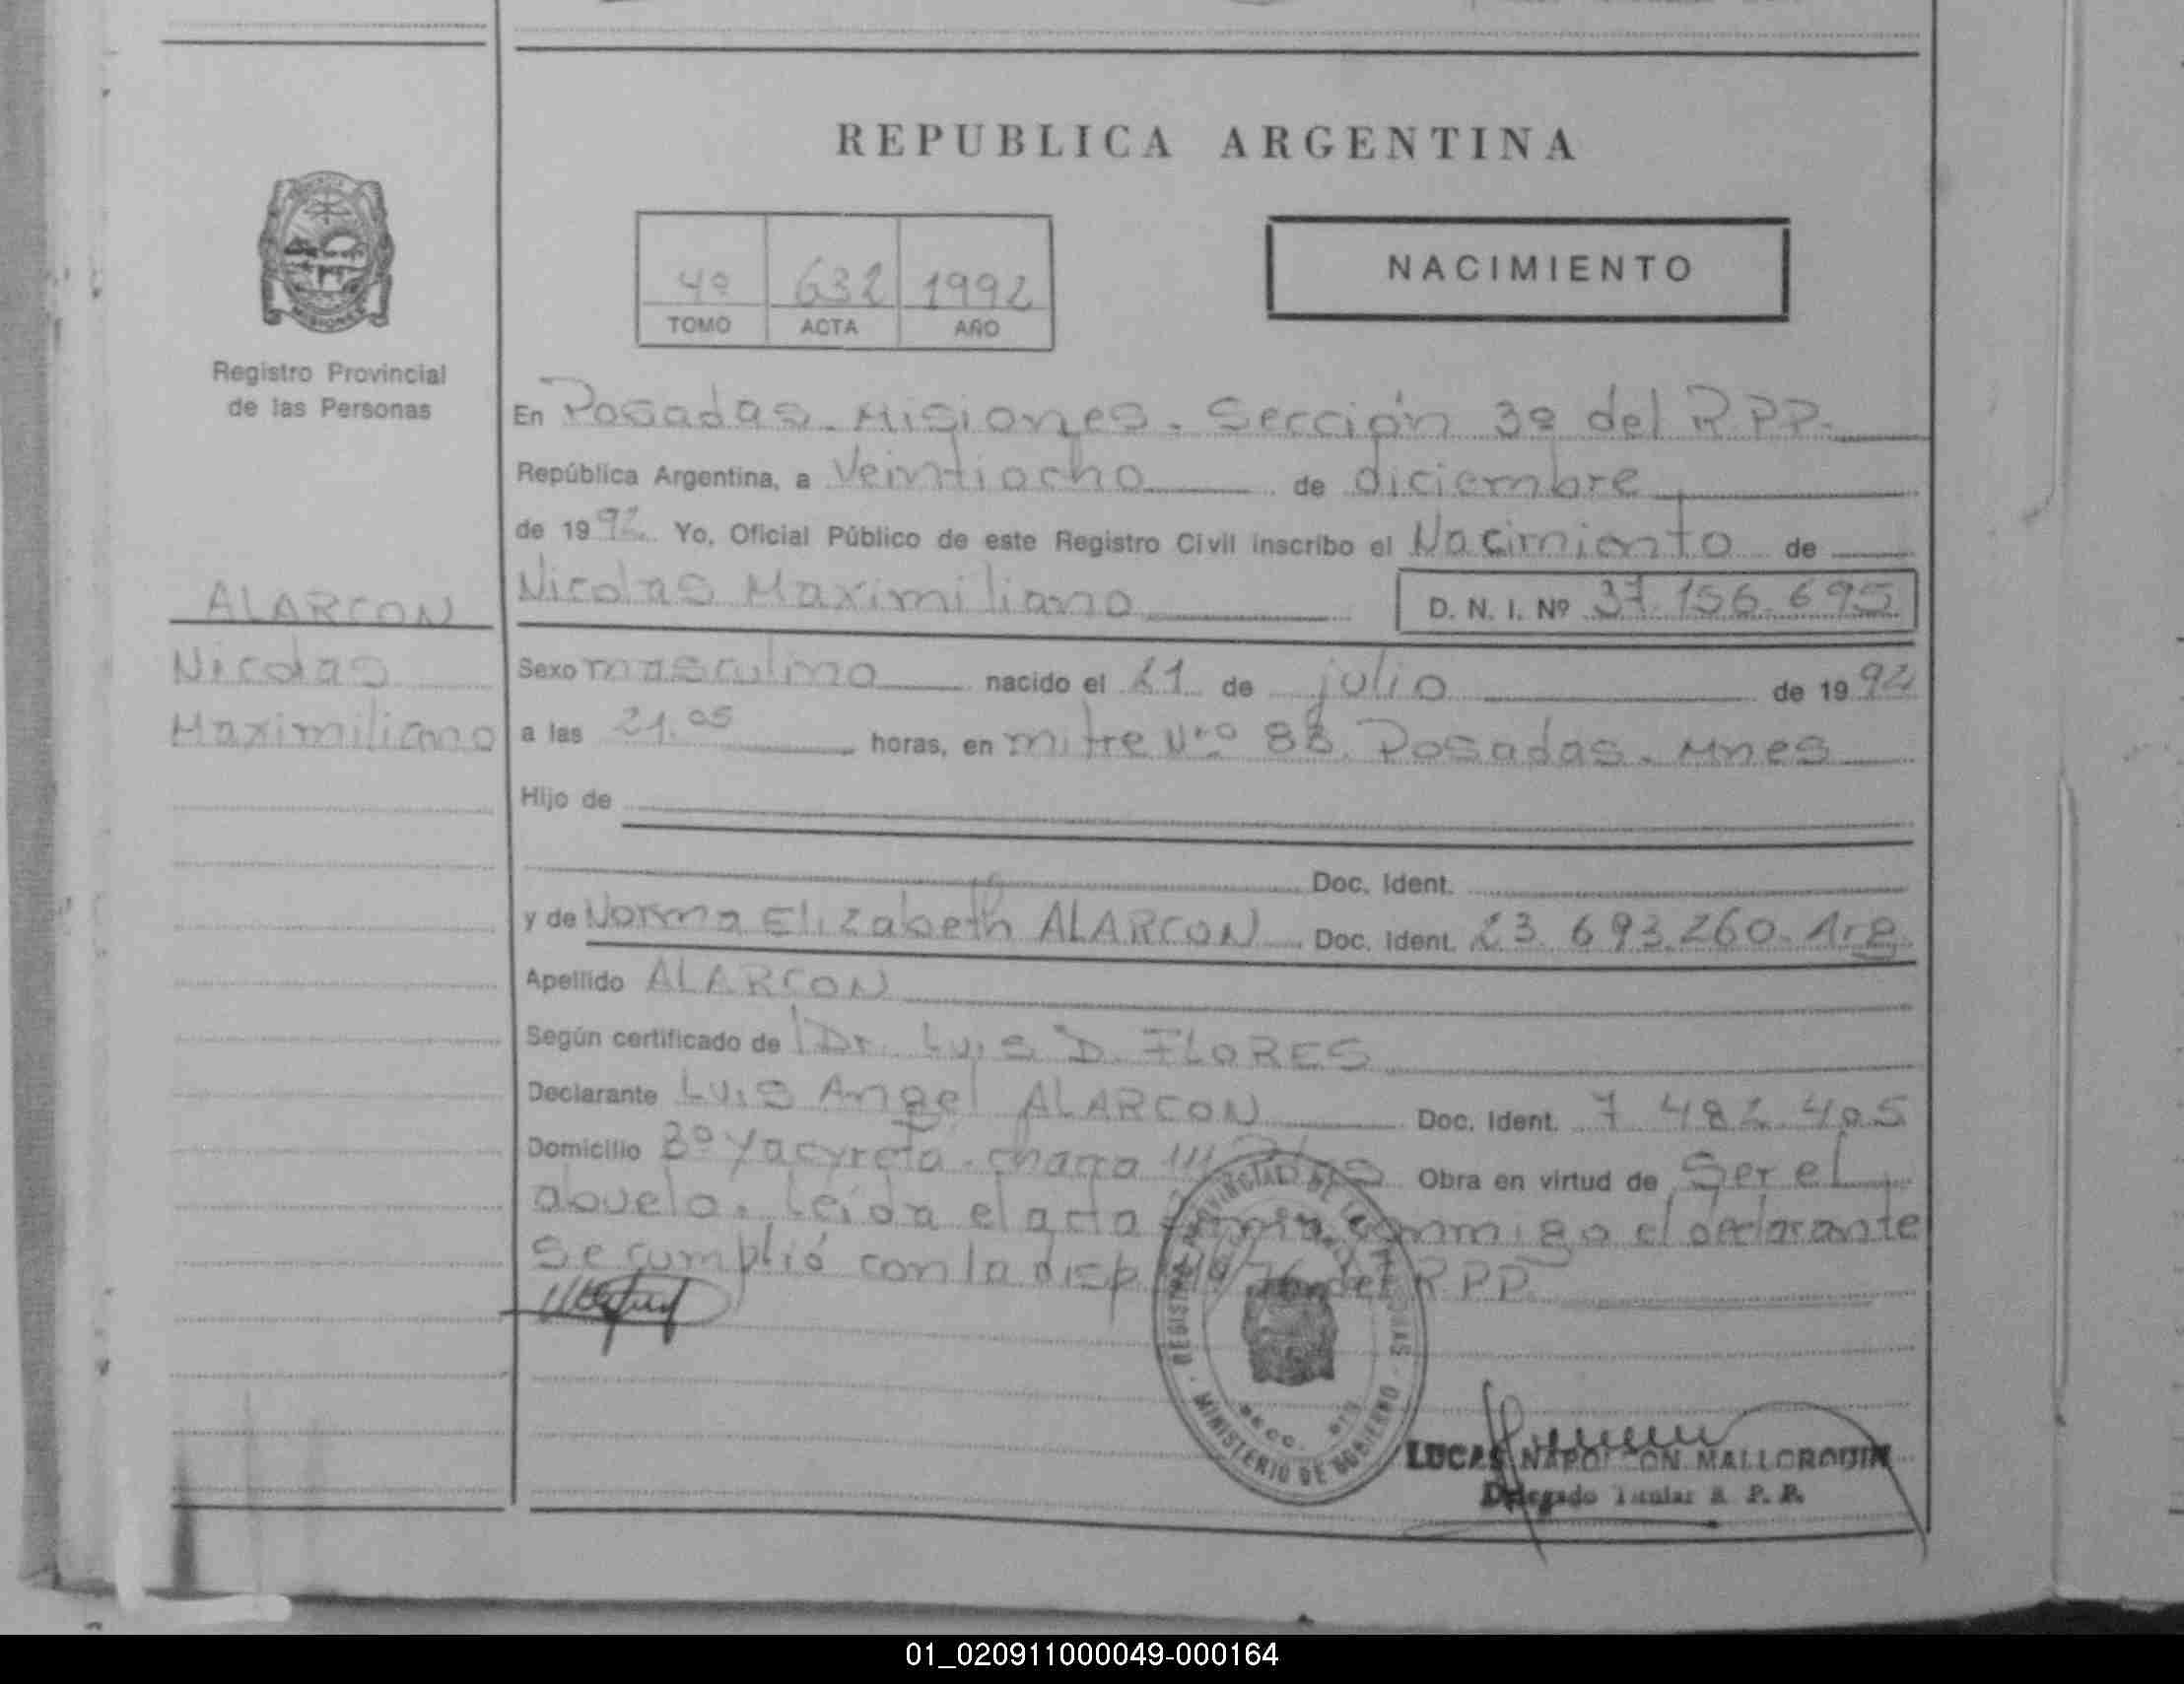 REPUBLICA ARGENTINA
4º 632 1992
TOMO ACTA AÑO
NACIMIENTO
MISIONES
Registro Provincial
de las Personas
ALARCON
Nicolas
Maximiliano
En Posadas - Misiones. Sección 3º del R.P.P.
República Argentina, a Veintiocho de diciembre
de 1992. Yo, Oficial Público de este Registro Civil inscribo el Nacimiento de
Nicolas Maximiliano D. N. I. Nº 37.156.695
Sexo masculino nacido el 21 de julio de 1992
a las 21.05 horas, en mitre Nro 88. Posadas. Mnes
Hijo de
Doc. Ident.
y de Norma Elizabeth ALARCON Doc. Ident. 23.693.260. Arg.
Apellido ALARCON
Según certificado de Dr. Luis D. FLORES
Declarante Luis Angel ALARCON Doc. Ident. 7.482.405
Domicilio Bº Yacyreta. chacra Obra en virtud de Ser el
abuelo. Leida el acta conmigo el declarante
Se cumplió con la disp del R.P.P.
REGISTRO PROVINCIAL DE LAS PERSONAS
MINISTERIO DE GOBIERNO
LUCAS NAPOLEON MALLORQUIN
Delegado Titular R. P. P.
01_020911000049-000164